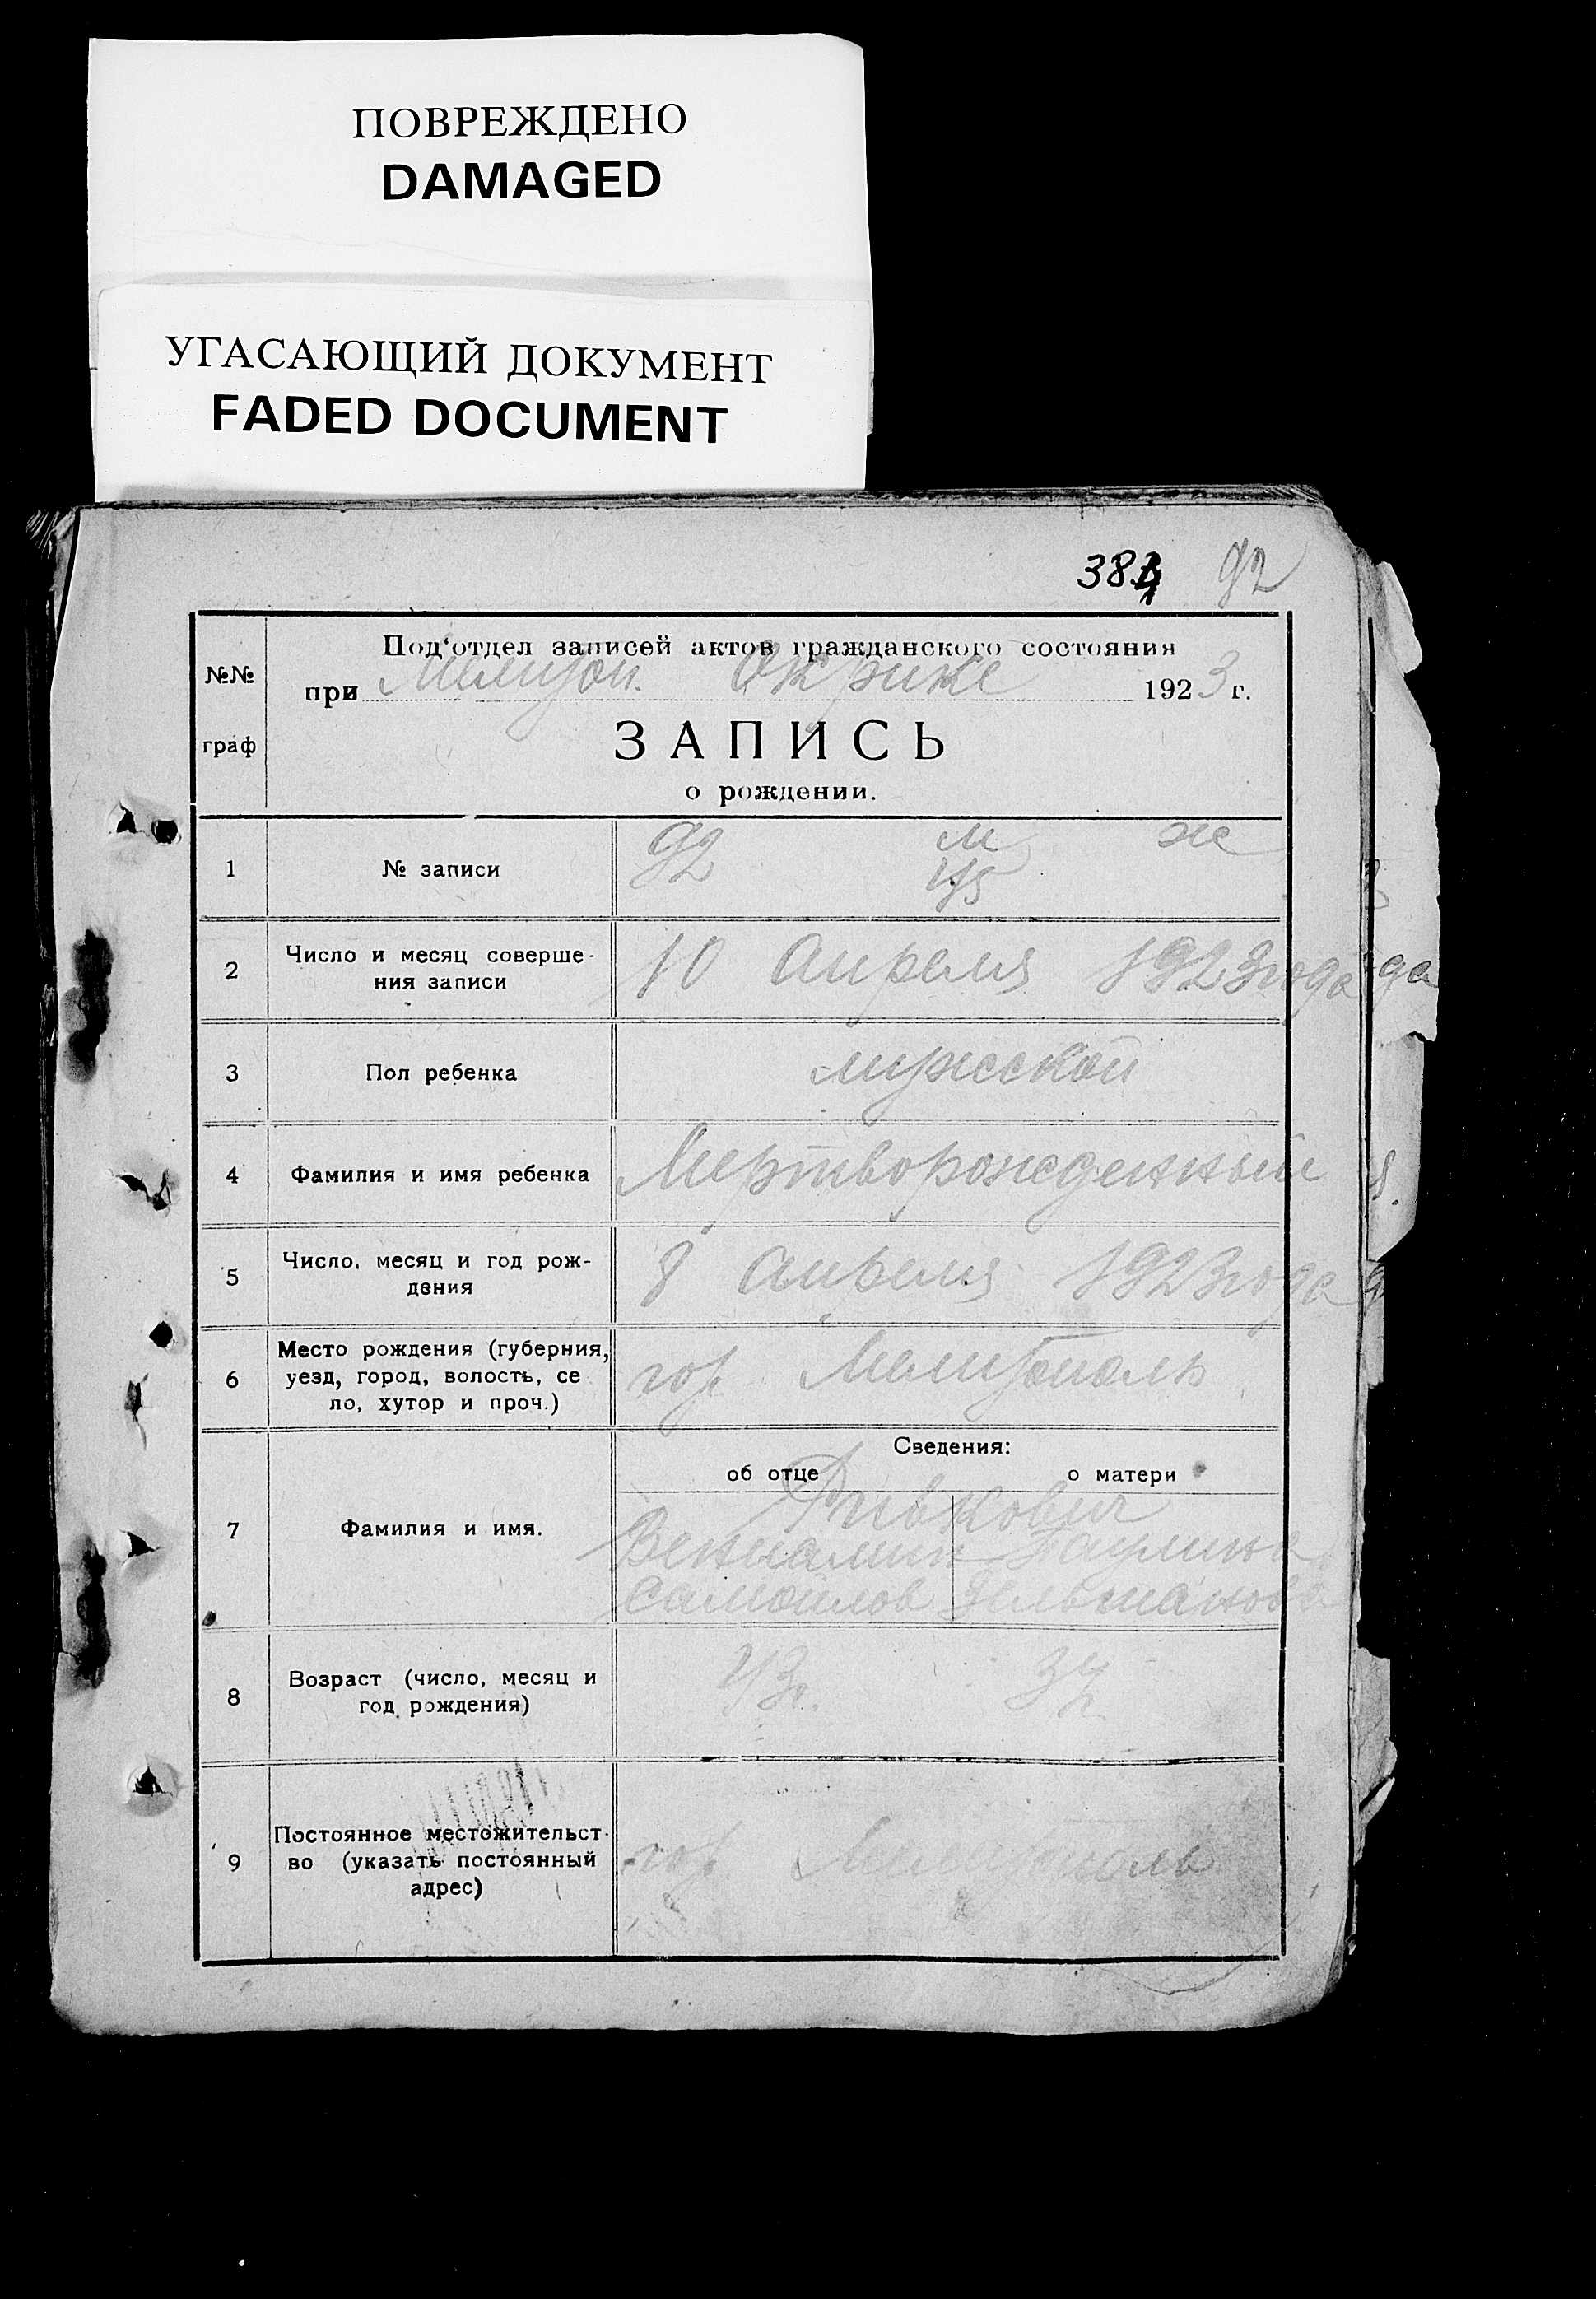 ПОВРЕЖДЕНО
DAMAGED
УГАСАЮЩИЙ ДОКУМЕНТ
FADED DOCUMENT
384 92
№№ граф
Под'отдел записей актов гражданского состояния
при Мелитоп. Окрике 1923 г.
ЗАПИСЬ
о рождении.
1 № записи 92 м 45 ж
2 Число и месяц соверше-
ния записи 10 Апреля 1923 года
3 Пол ребенка мужской
4 Фамилия и имя ребенка Мертворожденный
5 Число, месяц и год рож-
дения 8 Апреля 1923 года
6 Место рождения (губерния,
уезд, город, волость, се
ло, хутор и проч.) гор Мелитополь
Сведения:
об отце о матери
7 Фамилия и имя. Рывкович
Вениамин Паулина
Самойлов
8 Возраст (число, месяц и
год рождения) 43г. 34
9 Постоянное местожительст-
во (указать постоянный
адрес) гор Мелитополь